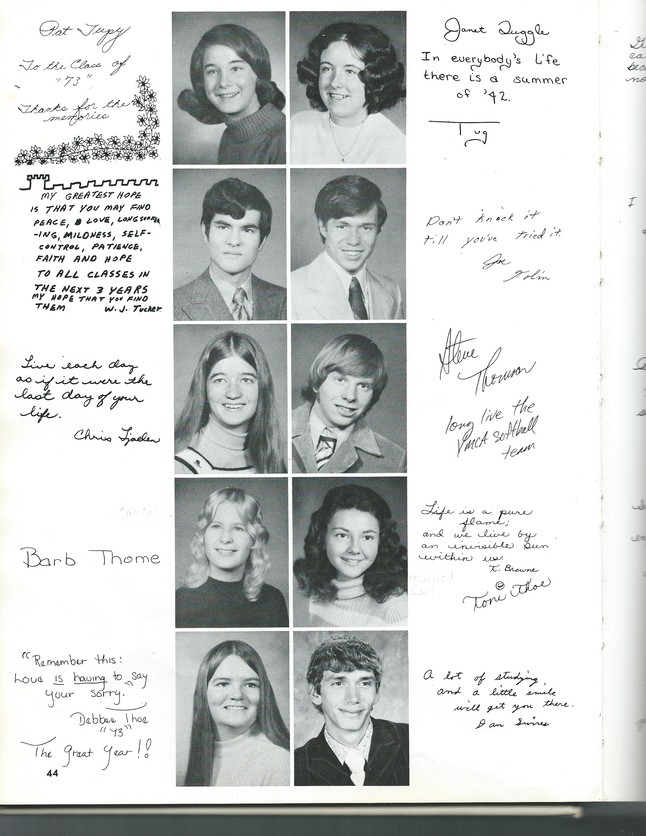 Pat Tupy
To the Class of
"73"
Thanks for the
memories
Janet Tuggle
In everybody's life
there is a summer
of '42.
Tug
MY GREATEST HOPE
IS THAT YOU MAY FIND
PEACE, LOVE, LONGSUFFER
-ING, MILDNESS, SELF-
CONTROL, PATIENCE,
FAITH AND HOPE
TO ALL CLASSES IN
THE NEXT 3 YEARS
MY HOPE THAT YOU FIND
THEM W. J. Tucker
Don't knock it
till you've tried it.
Joe
Tolin
Live each day
as if it were the
last day of your
life.
Chris Tjaden
Steve
Thomson
long live the
YMCA softball
team
Barb Thome
Life is a pure
flame;
and we live by
an invisible sun
within us.
T. Browne
Toni Thoe
"Remember this:
Love is having to say
your sorry."
Debbee Thoe
"73"
The Great Year!!
A lot of studying,
and a little smile
will get you there.
Dan Swires
44